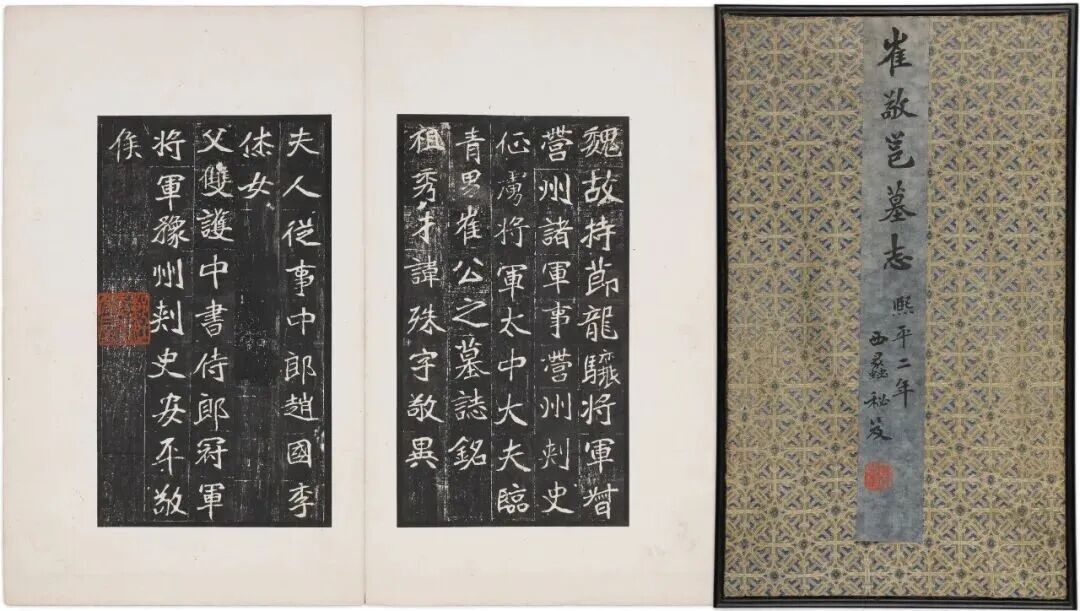 崔敬邕墓志
熙平二年
西蠡秘笈
魏故持節龍驤将軍督
營州諸軍事營州刺史
征虜将軍太中大夫臨
青男崔公之墓誌銘
祖秀才諱殊字敬異
夫人從事中郎趙國李
烋女
父雙護中書侍郎冠軍
将軍豫州刺史安平敬
侯